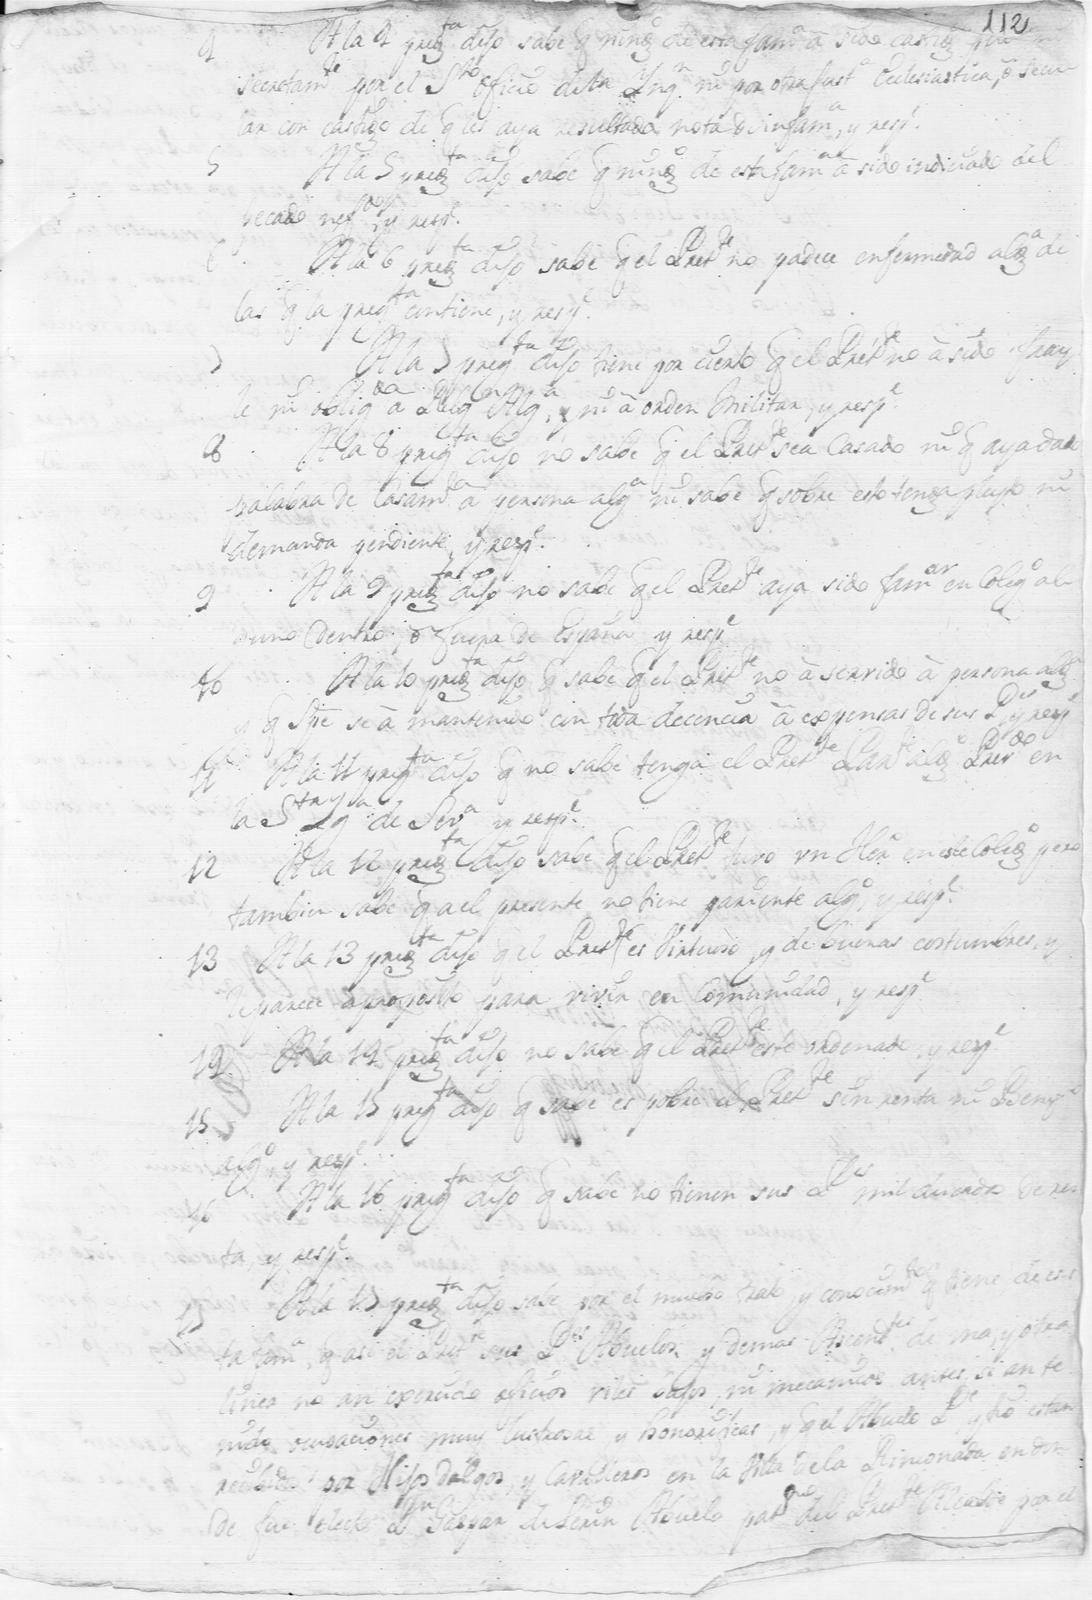 112
4 A la 4 preg.ta dijo sabe q ning.o de esta fam.a à sido castig.do
secretam.te por el S.to oficio de la Inq.n ni por otra Just.a Eclesiastica, o secu
lar con castigo de q les aya resultado nota de infam.a, y resp.e
5 A la 5 preg.ta dijo sabe q ning.o de esta fam.a à sido indiciado del
pecado nef.do, y resp.e
6 A la 6 preg.ta dijo sabe q el Pret.te no padece enfermedad alg.a de
las q la preg.ta contiene, y resp.e
7 A la 7 preg.ta dijo tiene por cierto q el Pret.te no à sido fray
le ni oblig.do a Relig.n Alg.a, y ni à orden Militar, y resp.e
8 A la 8 preg.ta dijo no sabe q el Pret.te sea Casado ni q aya dado
palabra de Casam.to à persona alg.a ni sabe q sobre esto tenga pleyto ni
demanda pendiente, y resp.e
9 A la 9 preg.ta dijo no sabe q el Pret.te aya sido fam.ar en Coleg.o al
guno dentro, o fuera de España y resp.e
10 A la 10 preg.ta dijo q sabe q el Pret.te no à servido à persona alg.a
y q Spre se à mantenido con toda decencia à expensas de sus P.es, y resp.e
11 A la 11 preg.ta dijo q no sabe tenga el Pret.te Par.te alg.o Pres.do en
la S.ta Ig.a de Sev.a y resp.e
12 A la 12 preg.ta dijo sabe q el Pret.te tuvo un Her.o en este Coleg.o pero
tambien sabe q a el presente no tiene pariente alg.o, y resp.e
13 A la 13 preg.ta dijo q el Pret.te es Virtuoso, y de buenas costumbres, y
le parece aproposito para vivir en Comunidad, y resp.e
14 A la 14 preg.ta dijo no sabe q el Pret.te este ordenado, y resp.e
15 A la 15 preg.ta dijo q sabe es pobre el Pret.te sin renta ni Benef.o
alg.o, y resp.e
16 A la 16 preg.ta dijo q sabe no tienen sus P.es mil ducados de ren
ta, y resp.e
17 A la 17 preg.ta dijo sabe por el mucho trato, y conocim.to q tiene de es
ta fam.a, q asi el Pret.te sus P.es Abuelos, y demas Ascend.tes de una, y otra
linea no an exercido oficios viles bajos, ni mecanicos antes si an te
nido ocupaciones muy lustrosas, y honorificas, y q el Abuelo P.e, y estan
recibidos por Hijos dalgos, y Cavalleros en la Villa de la Rinconada en don
de fue electo D.n Gaspar de Abuelo pat.no del Pret.te Alcalde por el